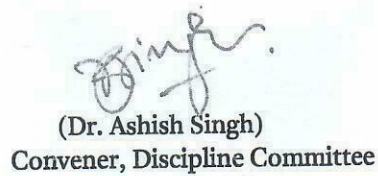 Singh.
(Dr. Ashish Singh)
Convener, Discipline Committee